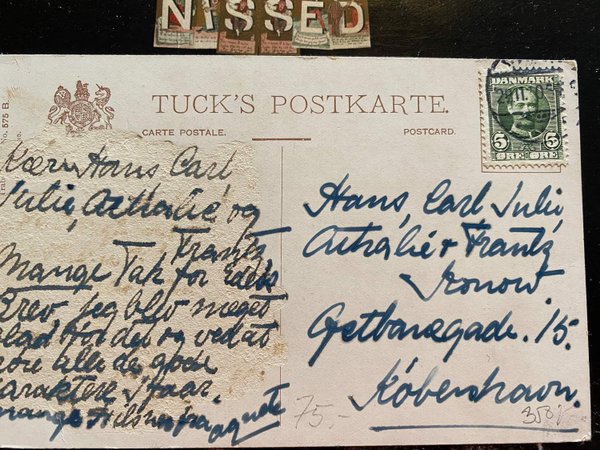 NISSED
TUCK'S POSTKARTE.
CARTE POSTALE.
POSTCARD.
No. 575 B.
DANMARK
5 5
ØRE ØRE
Kære Hans Carl
Julie, Athalie og
Frantz
Mange Tak for Eders
Brev jeg blev meget
glad for det og ved at
høre alle de gode
Karakterer I faar.
mange Hilsner fra Agnete
Hans, Carl Julie,
Athalie + Frantz
Konow
Østbanegade. 15.
København.
75,-